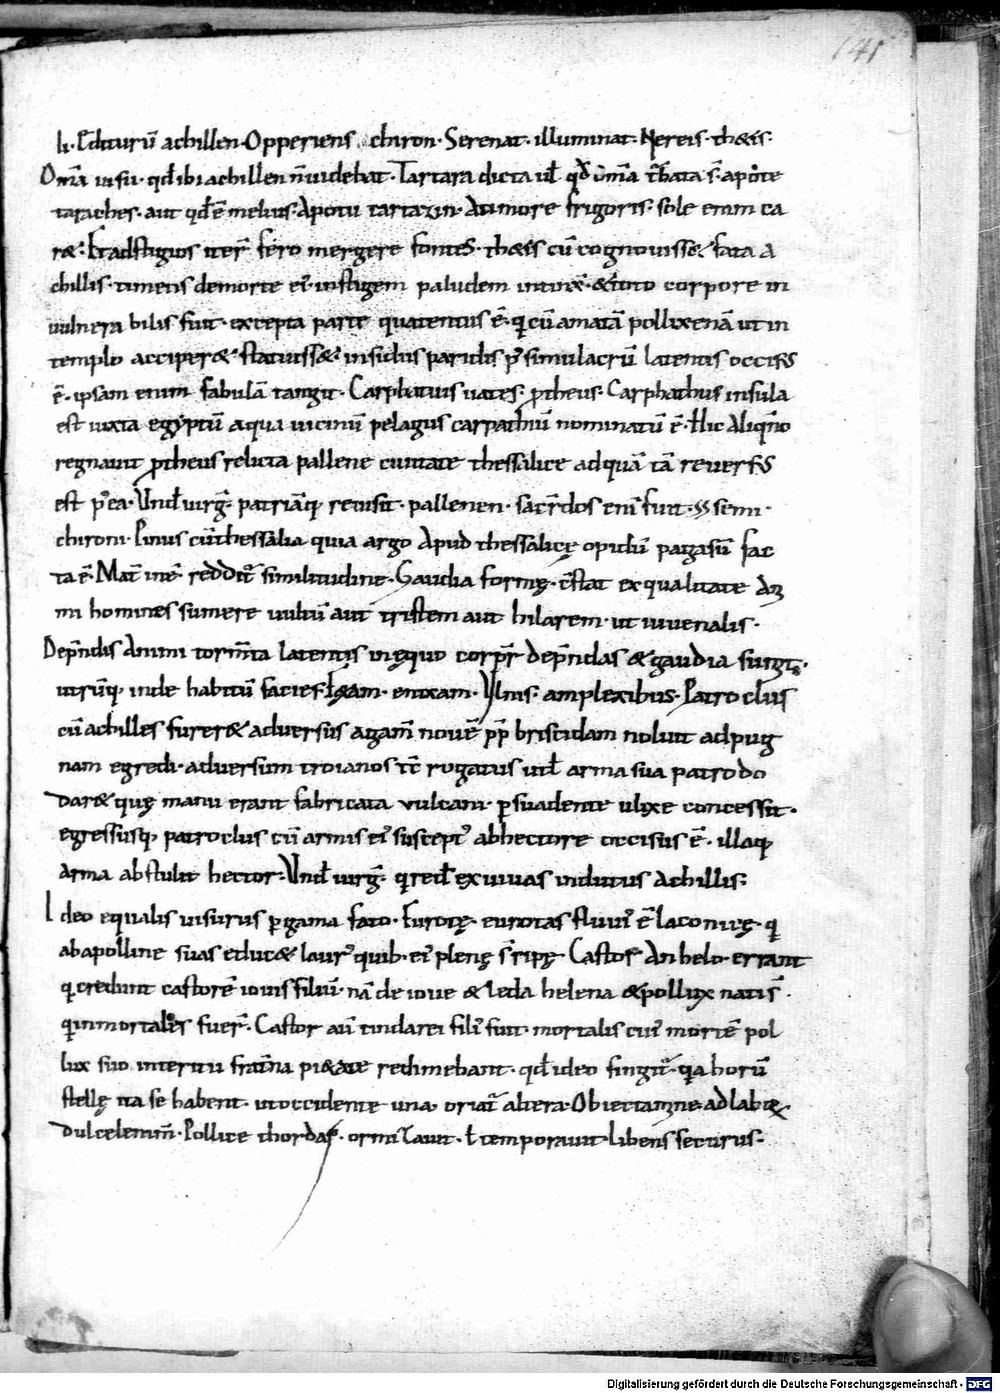 141
li. Editurū achillen. Opperiens. chiron. Serenat. illuminat. Nereis. th&is.
Omīa uisu. qd̄ ibi achillen n̄ uidebat. Tartara dicta ul̄ qd̄ om̄a t̄bata s̄. apo te
taraches. aut qd̄ ē melius. Apo tu tartazin. Atimore frigoris. sole enim ca
r&. Et ad stigios iter̄ fero mergere fontes. th&is cū cognouiss& fata a
chillis. timens demorte ei᾽. in stigem paludem intinx̄. & toto corpore in
uulnera bilis fuit. excepta parte qua tentus ē. q cū amatā pollixenā ut in
templo acciper& statuiss& insidiis paridis p᾽ simulacrū latentis occisus
ē. ipsam enim fabulā tangit. Carphatius uates. p̱theus. Carphathus insula
est iuxta egyptū a qua uicinū pelagus carpathiū nominatū ē. Hic aliqn̄o
regnauit p̱theus relicta pallene ciuitate thessalice ad quā tā reuersus
est p᾽ea. Und̄ uirḡ. patriāq; reuisit. pallenen. sacr̄dos eni fuit. semi.
chironi. Pinus cū thessalia quia argo apud thessalicę opidū pagasū fac
ta ē. Mat̄ inē. reddit᾽ similitudine. Gaudia formę. c̄stat ex qualitate an
mi homines sumere uultū aut tristem aut hilarem. ut iuuenalis.
Depn̄dis animi torm̄ta latentis in ęquo corpr̄ depn̄das & gaudia sumit.
utrūq;. inde habitū facies. enixam. Ulnis. amplexibus. Patroclus
cū achilles furer& aduersus agam̄ nonē pp̄ briseidam noluit ad pug
nam egredi. aduersum troianos tc̄ rogatus ut ul̄ arma sua patroclo
dar& quę manu erant fabricata vulcani. p̱suadente ulixe concessit.
egressusq; patroclus cū armis ei᾽ suscept᾽ ab hectore occisus ē. illaq;
arma abstulit hector. Und̄ uirḡ. q red̄ exuuias indutus achillis.
Ideo equalis uisurus p̱gama fato. Eurotę. eurotas fluui᾽ ē laconicę. q
ab apolline suas educ& laur᾽ quib. ei᾽ plenę s̄ ripę. Castor. Anhelo. errant
q credunt castorē iouis filiū. nā de ioue & leda helena & pollux natis̄.
q inmortales fuer̄. Castor aū tindarei fili᾽ fuit. mortalis cui᾽ mortē pol
lux suo interitu frat̄na pi&ate redimebant. qd̄ ideo fingit᾽. q̱a horū
stellę ita se habent. ut occidente una. oriat᾽ altera. Obiectamne. ad labę
dulcelenim̄. Pollice chordas. ornauit. ł temporauit. libens securus.
Digitalisierung gefördert durch die Deutsche Forschungsgemeinschaft - DFG